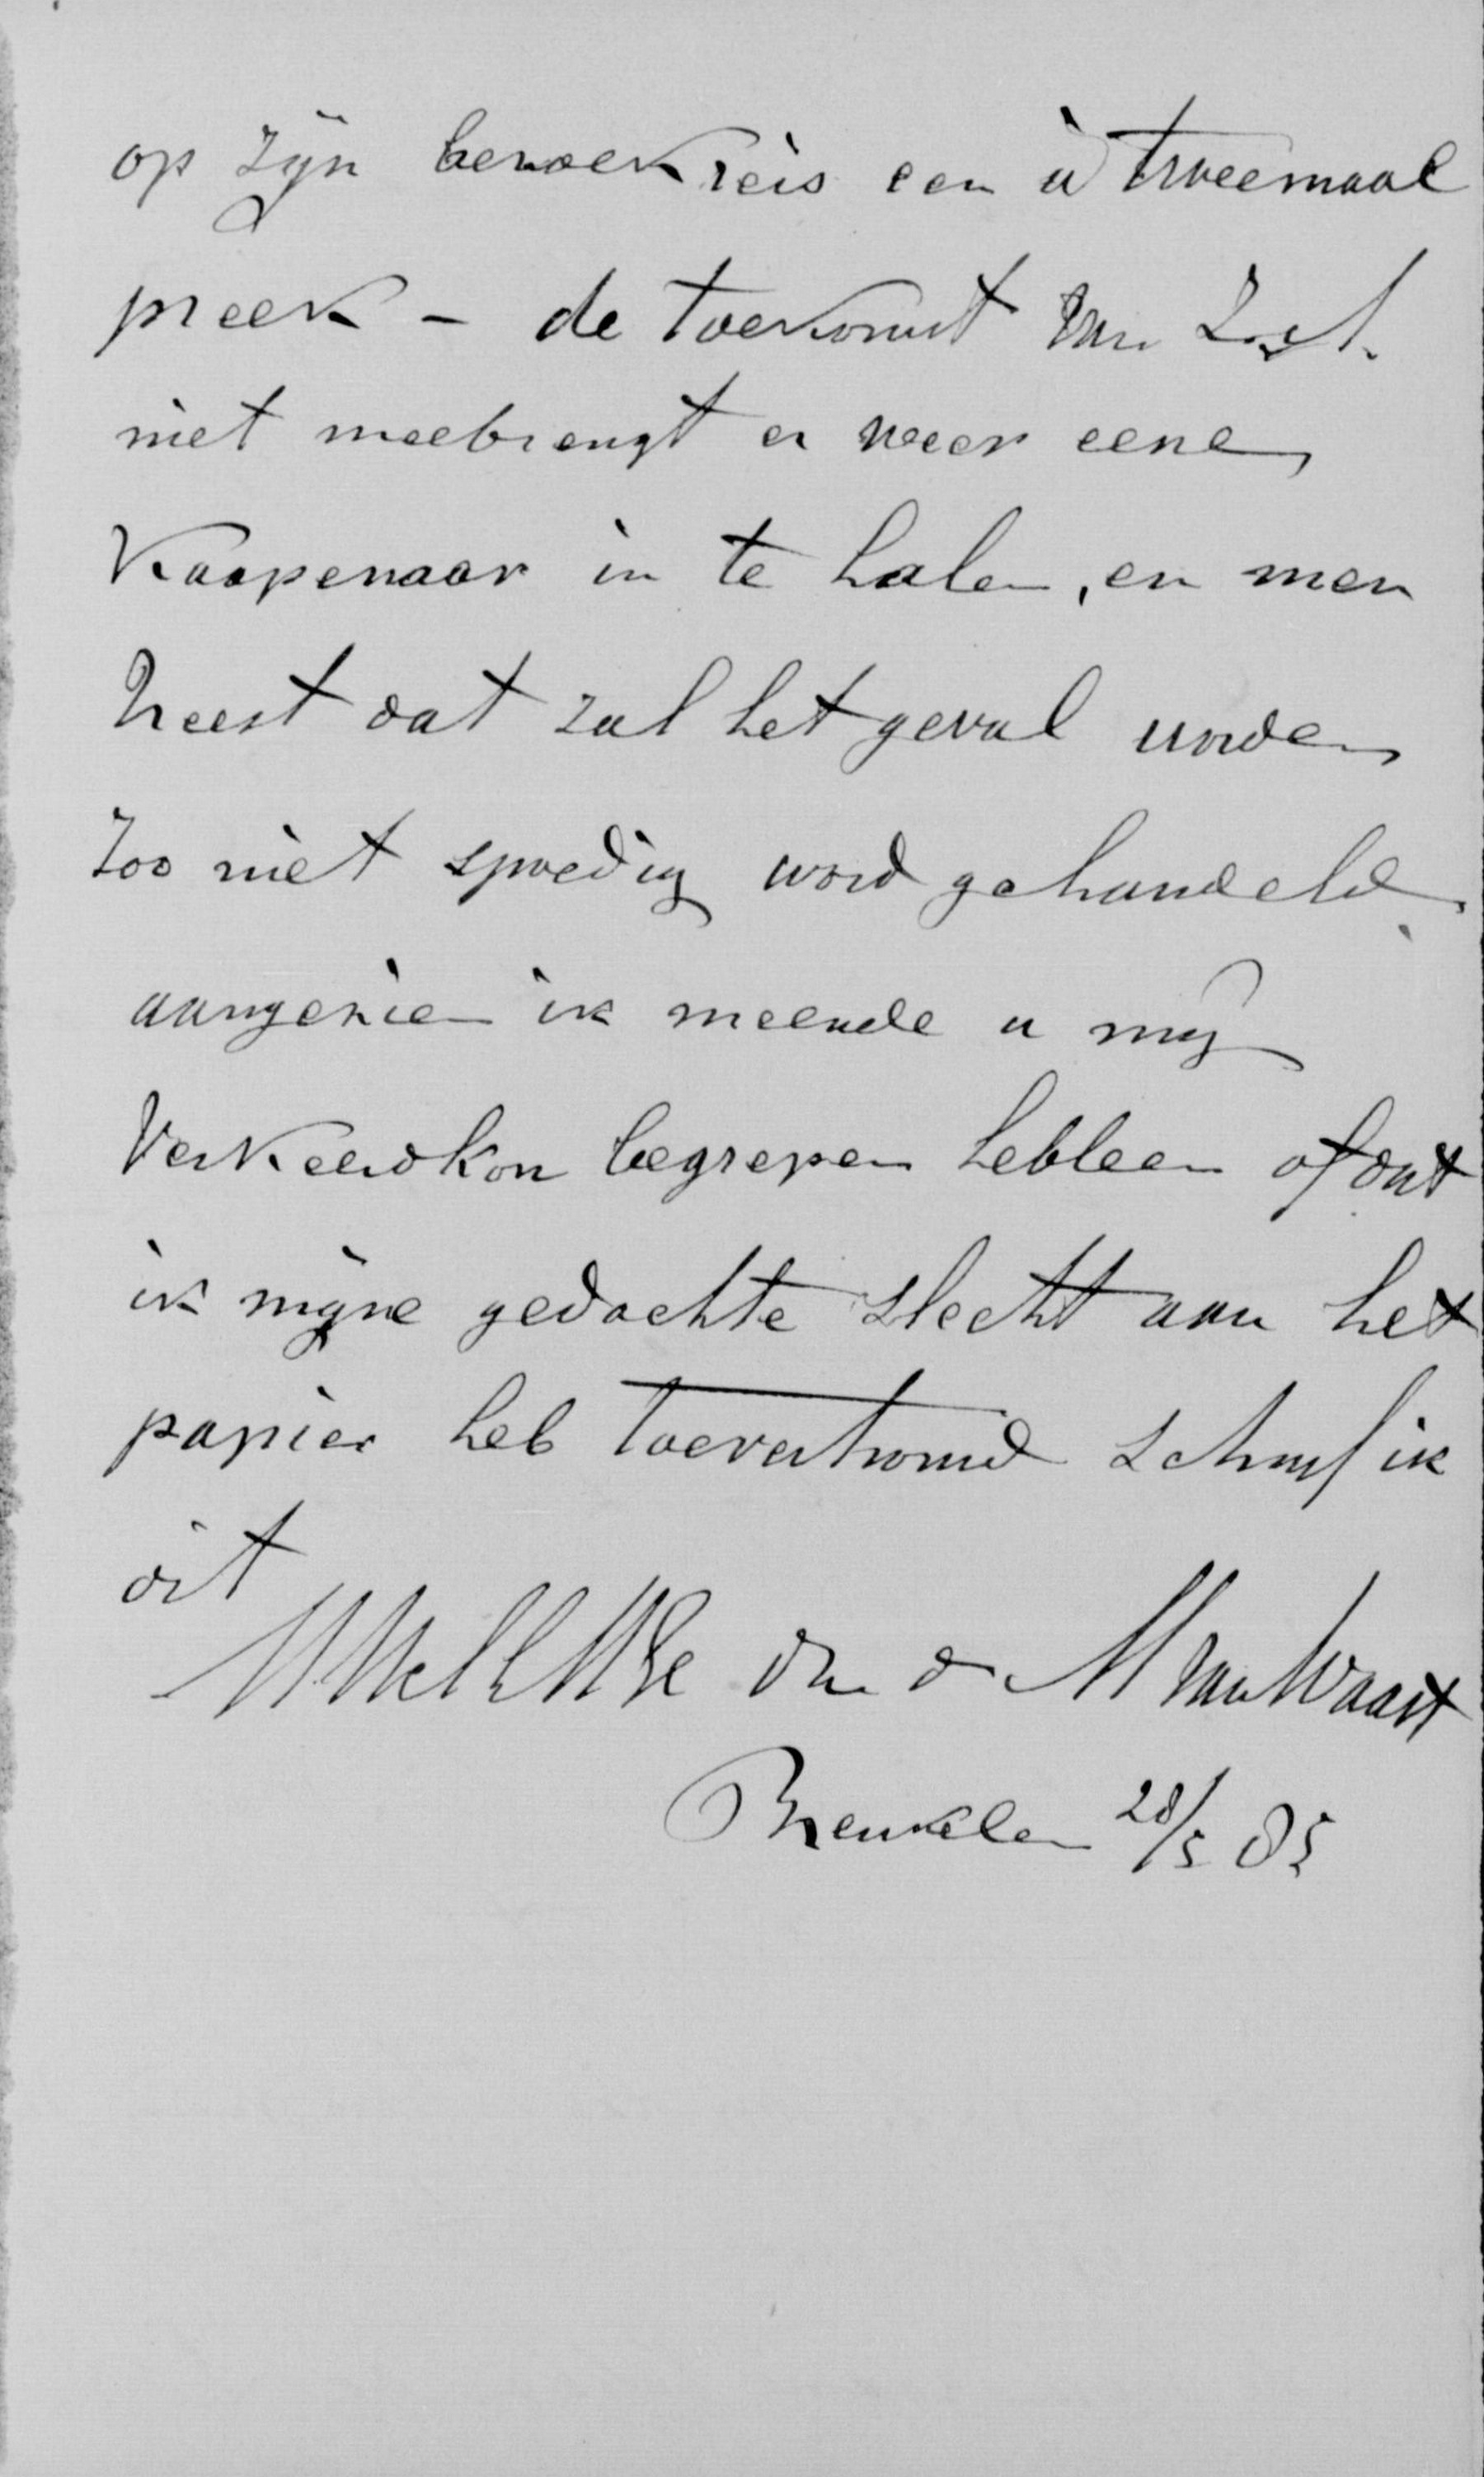 op zijn bezoekreis een à tweemaal
preek - de toekomst van
niet meebrengt er weer eenen
Kaapenaar in te halen, en men
vreest dat zal het geval worden
zoo niet spoedig word gehandeld.
aangezien ik meende u mij
verkeerd kon begrepen hebben of dat
ik mijne gedachte slecht aan het
papier heb toevertrouwd schrijf ik
dit
UWelEdWe M van Waart
Breukelen 28/5 85